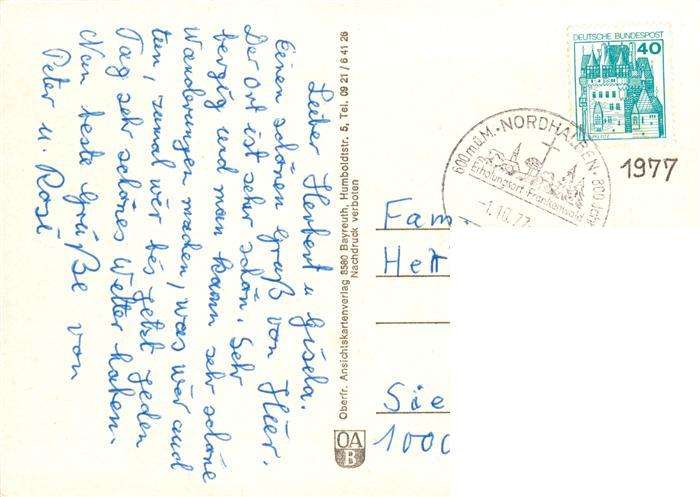 Lieber Herbert u Gisela.
Einen schönen Gruß von Hier.
Der ort ist sehr schön. Sehr
bergig und man kann sehr schöne
Wanderungen machen, was wir auch
tun, zumal wir bis jetzt jeden
Tag sehr schönes Wetter haben.
Nun beste Grüße von
Peter u. Rosi
Oberfr. Ansichtskartenverlag 8580 Bayreuth, Humboldtstr. 5, Tel. 09 21 / 6 41 26
Nachdruck verboten
OA
B
DEUTSCHE BUNDESPOST
40
600 m ü.M. · NORDHALBEN ·
Erholungsort Frankenwald
-1.10.77
1977
Fam
Sie
1000